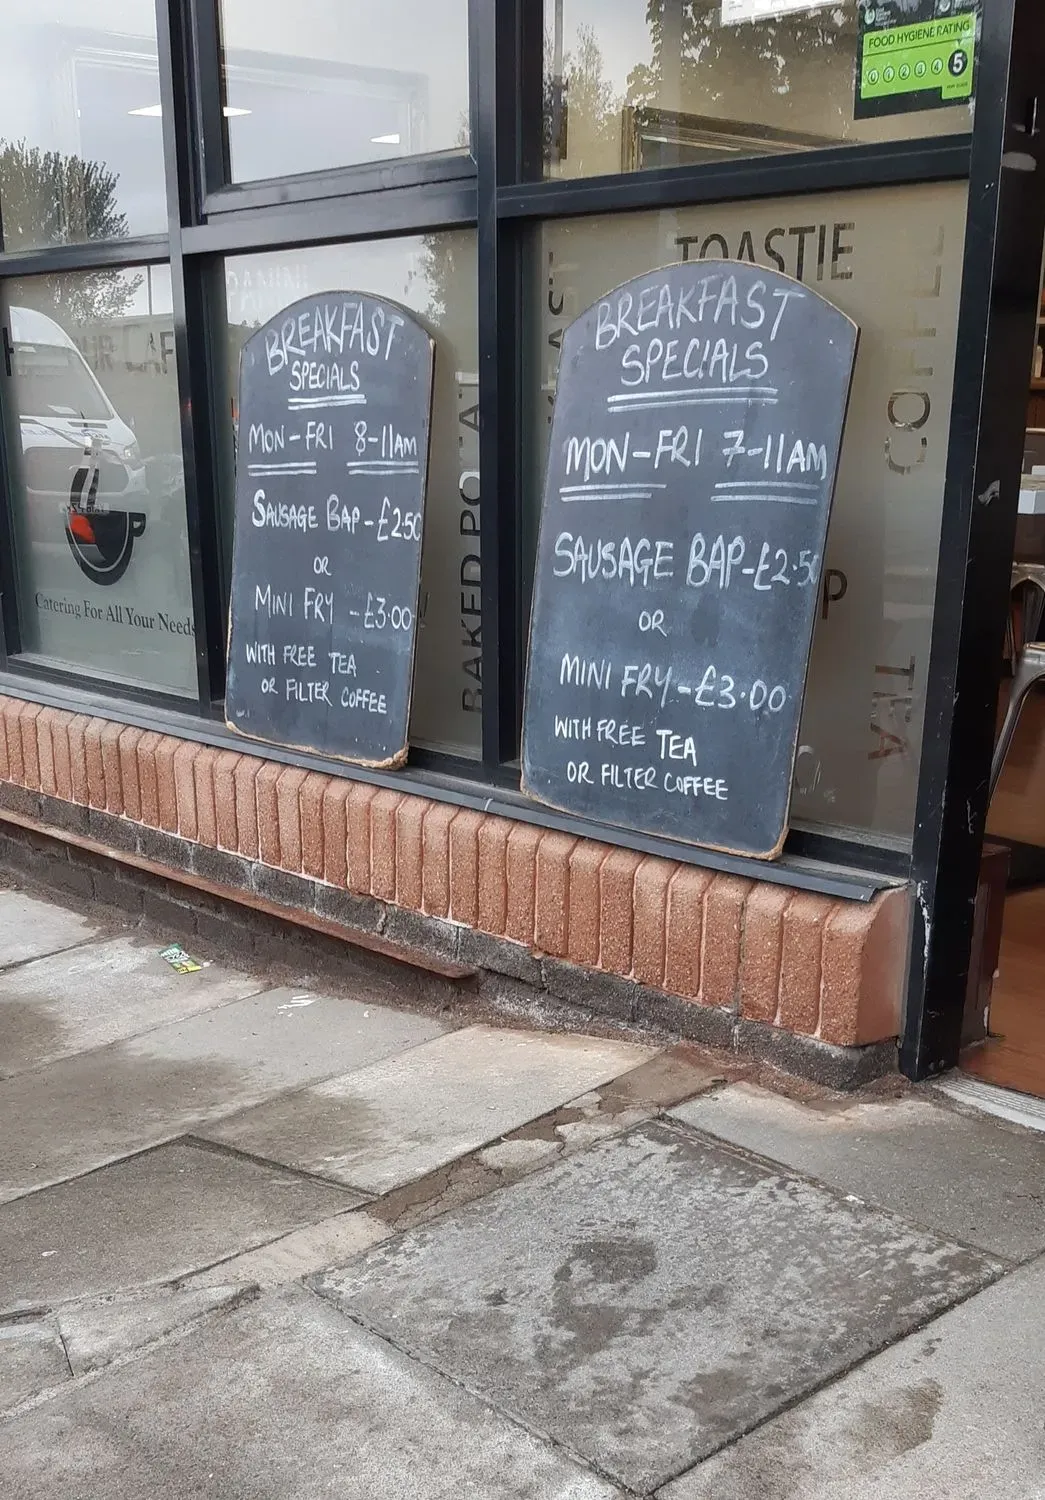 FOOD HYGIENE RATING
0 1 2 3 4 5
TOASTIE
COFFEE
TEA
BREAKFAST
SPECIALS
MON-FRI 8-11AM
SAUSAGE BAP-£2.50
OR
MINI FRY -£3.00
WITH FREE TEA
OR FILTER COFFEE
BREAKFAST
SPECIALS
MON-FRI 7-11AM
SAUSAGE BAP-£2.50
OR
MINI FRY-£3.00
WITH FREE TEA
OR FILTER COFFEE
Catering For All Your Needs